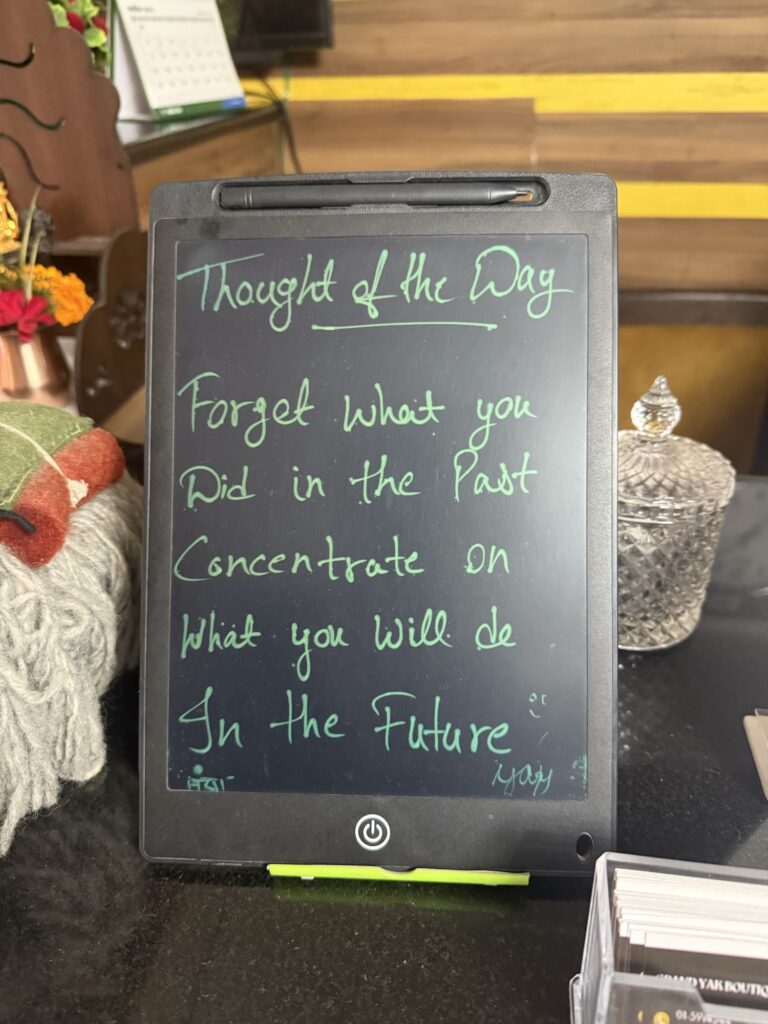 Thought of the Day
Forget What you
Did in the Past
Concentrate on
What you Will do
In the Future
yay
GRAND YAK BOUTIQ